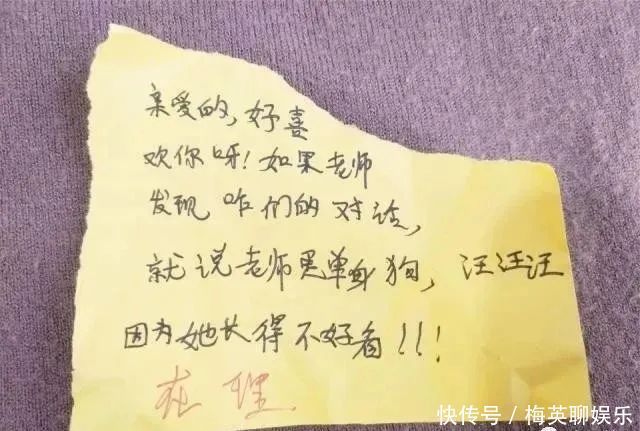 亲爱的,好喜
欢你呀!如果老师
发现咱们的对话,
就说老师是单身狗,汪汪汪
因为她长得不好看!!!
在理
快传号/梅英聊娱乐